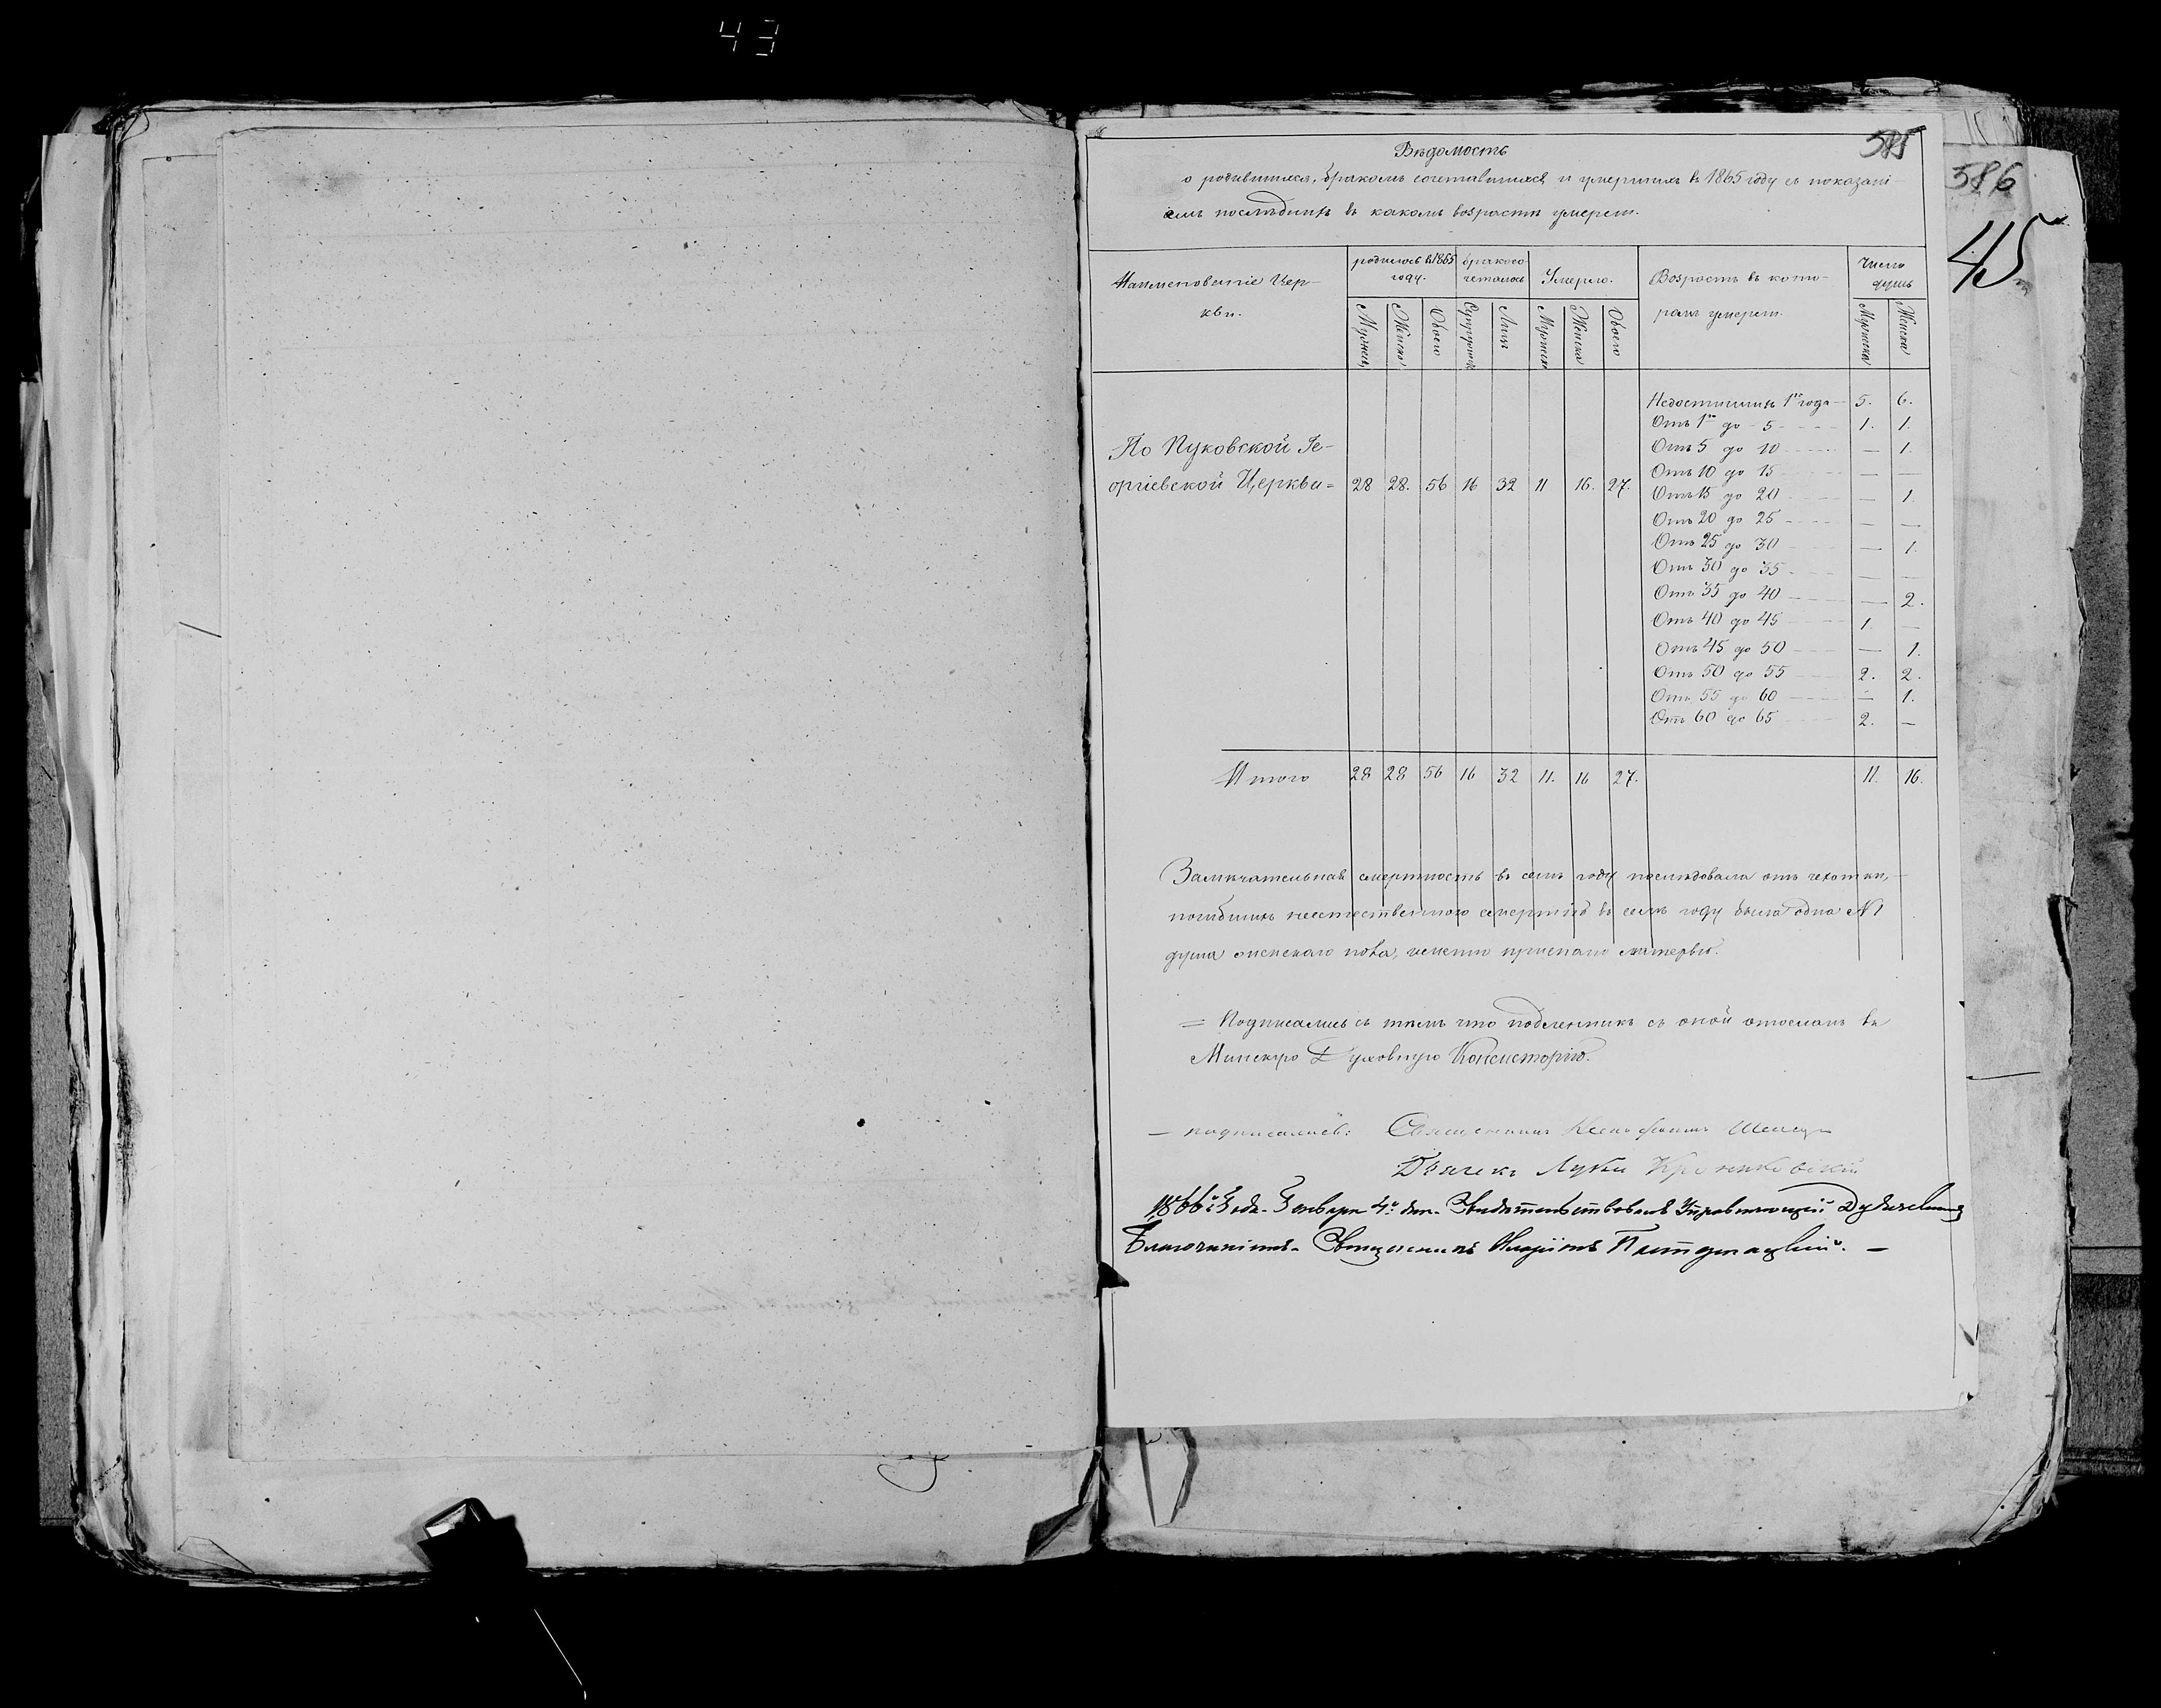 43
Вѣдомость
585
о родившихся, бракомъ сочетавшихся и умершихъ въ 1865 году съ показані-
емъ послѣднихъ въ какомъ возрастѣ умерли.
586
45
Наименованіе Цер-
кви.
родилось въ 1865
году.
бракосо-
четалось
Умерло.
Возрастъ въ кото-
ромъ умерли.
Число
душъ
Мужеска
Женска
Обоего
Супружест
Лицъ
Мужеска
Женска
Обоего
Мужеска
Женска
Недостигшихъ 1го года 5. 6.
Отъ 1го до 5 1. 1.
Отъ 5 до 10 — 1.
Отъ 10 до 15 — —
Отъ 15 до 20 — 1.
Отъ 20 до 25 — —
Отъ 25 до 30 — 1.
Отъ 30 до 35 — —
Отъ 35 до 40 — 2.
Отъ 40 до 45 1. —
Отъ 45 до 50 — 1.
Отъ 50 до 55 2. 2.
Отъ 55 до 60 — 1.
Отъ 60 до 65 2. —
По Пуковской Ге-
оргіевской Церкви = 28 28. 56 16 32 11 16. 27.
Итого 28 28 56 16 32 11. 16 27. 11. 16.
Замѣчательная смертность въ семъ году послѣдовала отъ чахотки,
погибшихъ неестественною смертію въ семъ году была одна №1
душа женскаго пола, приспано матерью.
= Подписались съ тѣмъ что подлинникъ съ оной отосланъ въ
Минскую Духовную Консисторію.
— подписались: Священникъ
Дьячекъ Лука
1866го Года Января 4го дня Свидѣтельствовалъ Управляющій
Благочиніемъ Священникъ